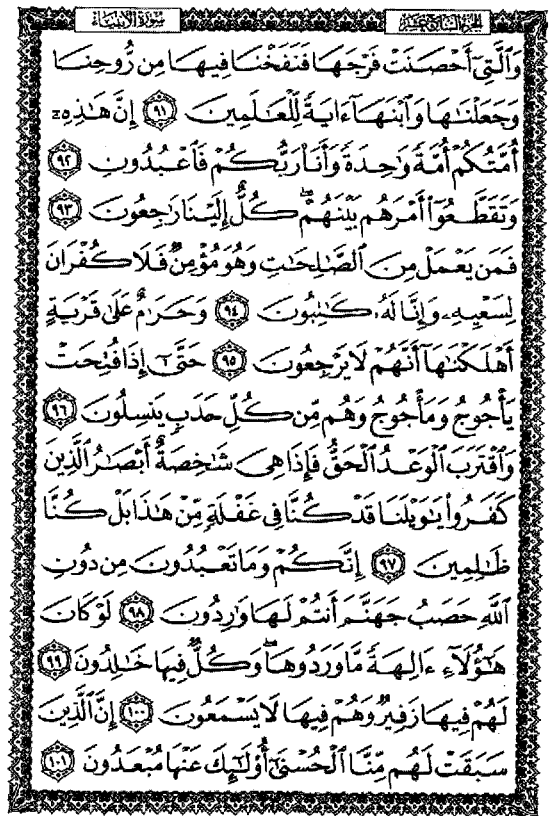 سورة الأنبياء
الجزء السابع عشر
وَالَّتِي أَحْصَنَتْ فَرْجَهَا فَنَفَخْنَا فِيهَا مِن رُّوحِنَا
وَجَعَلْنَٰهَا وَابْنَهَآ ءَايَةً لِّلْعَٰلَمِينَ ٩١ إِنَّ هَٰذِهِۦٓ
أُمَّتُكُمْ أُمَّةً وَٰحِدَةً وَأَنَا۠ رَبُّكُمْ فَاعْبُدُونِ ٩٢
وَتَقَطَّعُوٓا۟ أَمْرَهُم بَيْنَهُمْ ۖ كُلٌّ إِلَيْنَا رَٰجِعُونَ ٩٣
فَمَن يَعْمَلْ مِنَ الصَّٰلِحَٰتِ وَهُوَ مُؤْمِنٌ فَلَا كُفْرَانَ
لِسَعْيِهِۦ وَإِنَّا لَهُۥ كَٰتِبُونَ ٩٤ وَحَرَٰمٌ عَلَىٰ قَرْيَةٍ
أَهْلَكْنَٰهَآ أَنَّهُمْ لَا يَرْجِعُونَ ٩٥ حَتَّىٰٓ إِذَا فُتِحَتْ
يَأْجُوجُ وَمَأْجُوجُ وَهُم مِّن كُلِّ حَدَبٍ يَنسِلُونَ ٩٦
وَاقْتَرَبَ الْوَعْدُ الْحَقُّ فَإِذَا هِيَ شَٰخِصَةٌ أَبْصَٰرُ الَّذِينَ
كَفَرُوا۟ يَٰوَيْلَنَا قَدْ كُنَّا فِي غَفْلَةٍ مِّنْ هَٰذَا بَلْ كُنَّا
ظَٰلِمِينَ ٩٧ إِنَّكُمْ وَمَا تَعْبُدُونَ مِن دُونِ
اللَّهِ حَصَبُ جَهَنَّمَ أَنتُمْ لَهَا وَٰرِدُونَ ٩٨ لَوْ كَانَ
هَٰٓؤُلَآءِ ءَالِهَةً مَّا وَرَدُوهَا ۖ وَكُلٌّ فِيهَا خَٰلِدُونَ ٩٩
لَهُمْ فِيهَا زَفِيرٌ وَهُمْ فِيهَا لَا يَسْمَعُونَ ١٠٠ إِنَّ الَّذِينَ
سَبَقَتْ لَهُم مِّنَّا الْحُسْنَىٰٓ أُو۟لَٰٓئِكَ عَنْهَا مُبْعَدُونَ ١٠١